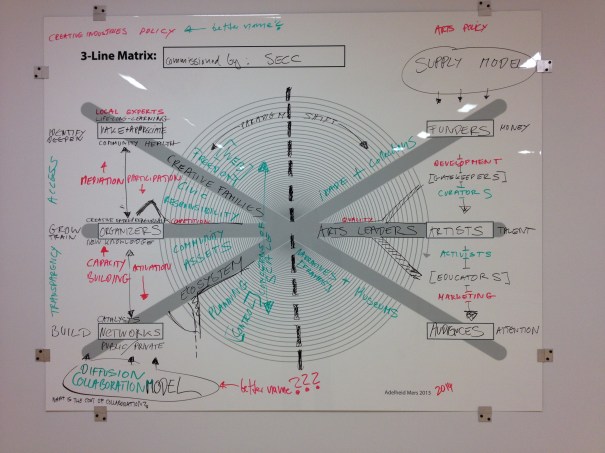 CREATIVE INDUSTRIES POLICY
better names
ARTS POLICY
3-Line Matrix:
commissioned by: SECC
SUPPLY MODEL
LOCAL EXPERTS
LIFELONG-LEARNING
MAKE+APPRECIATE
COMMUNITY HEALTH
IDENTIFY
PARADIGM SHIFT
FUNDERS
MONEY
ACCESS
MEDIATION
PARTICIPATION
CREATIVE FAMILIES
CIVIC
RESPONSIBILITY
DEVELOPMENT
[GATEKEEPERS]
CURATORS
GROW
TRAIN
ORGANIZERS
COMPETITION
QUALITY
ARTS LEADERS
ARTISTS
TALENT
TRANSPARENCY
CAPACITY
BUILDING
COMMUNITY
ASSETS
ECOSYSTEM
PLANNING
SCALE
+ MUSEUMS
ACTIVISTS
[EDUCATORS]
MARKETING
CATALYSTS
BUILD
NETWORKS
PUBLIC/PRIVATE
AUDIENCES
ATTENTION
DIFFUSION
COLLABORATION MODEL
better name ???
Adelheid Mers 2013
2014